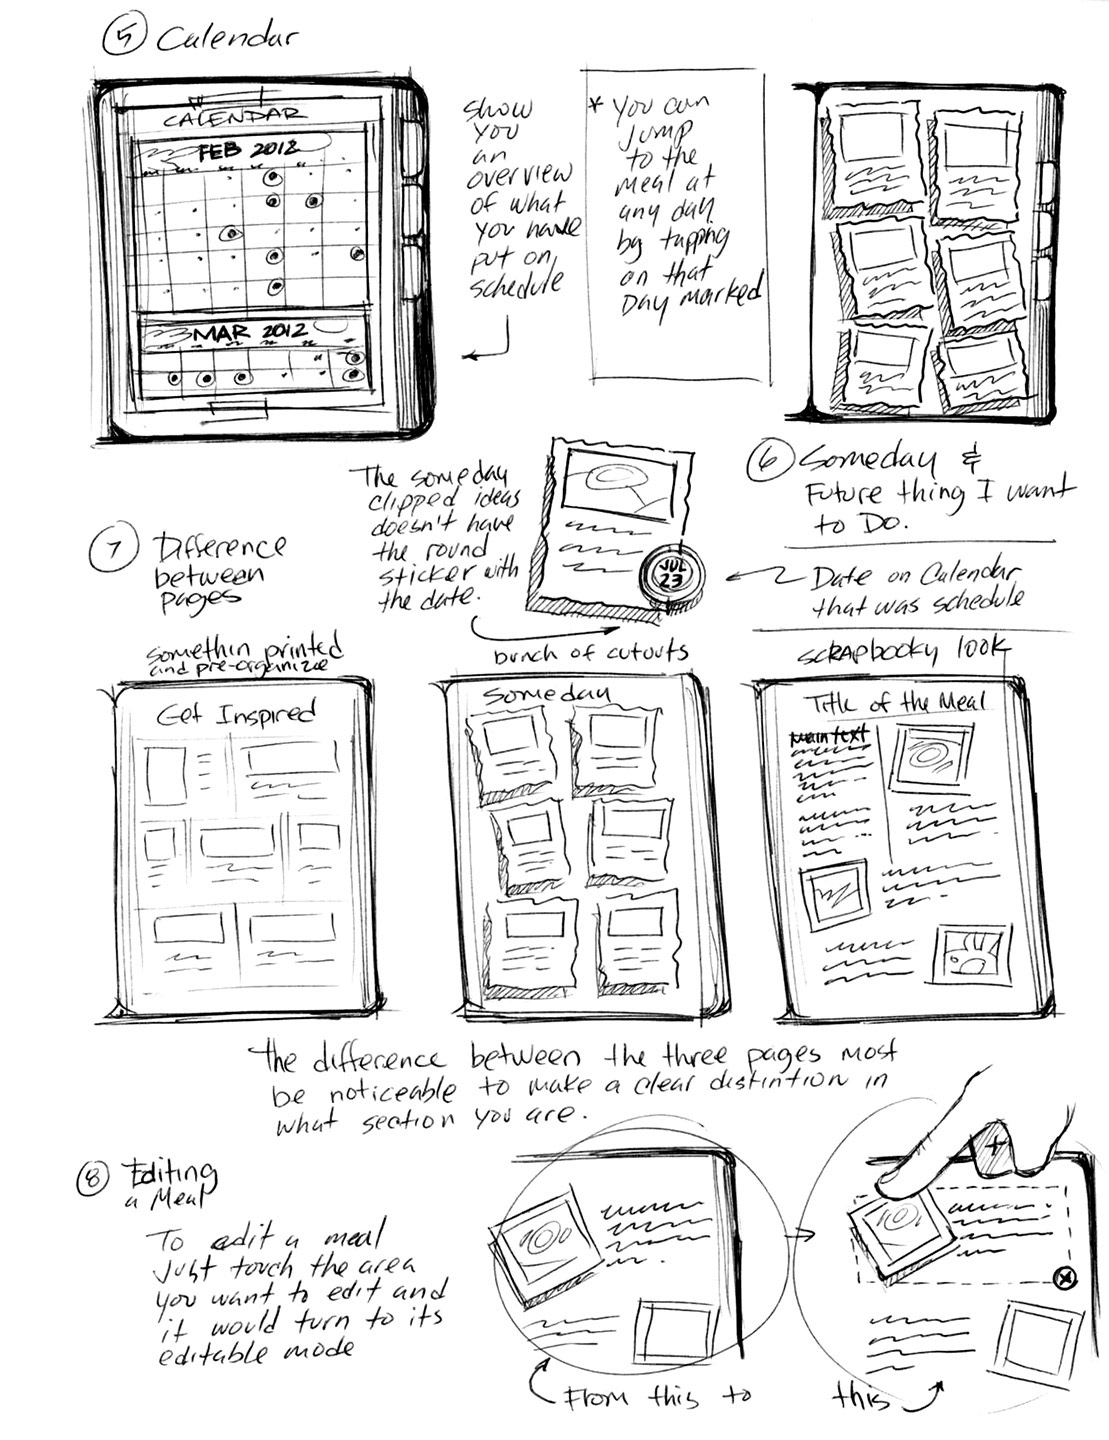 5 Calendar
CALENDAR
FEB 2012
MAR 2012
show
you
an
overview
of what
you have
put on
schedule
* You can
jump
to the
meal at
any day
by tapping
on that
Day marked
6 Someday &
Future thing I want
to Do.
The someday
clipped ideas
doesn't have
the round
sticker with
the date.
JUL
23
Date on Calendar
that was schedule
7 Difference
between
pages
somethin printed
and pre-organize
Get Inspired
bunch of cutouts
Someday
scrapbooky look
Title of the Meal
Main text
The difference between the three pages most
be noticeable to make a clear distintion in
what section you are.
8 Editing
a Meal
To edit a meal
Just touch the area
you want to edit and
it would turn to its
editable mode
+
x
From this to
this